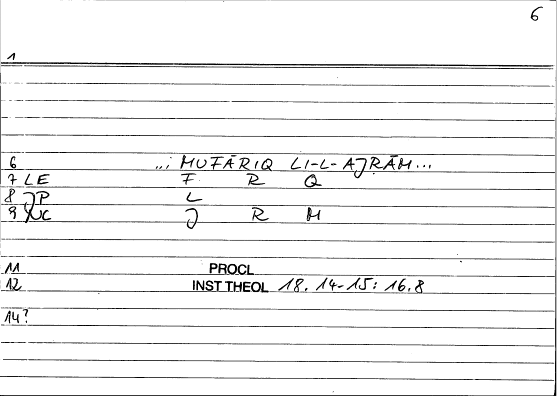 6
1
6 ..; MUFĀRIQ LI-L-AJRĀM...
7 LE F R Q
8 JP L
9 XC J R M
11 PROCL
12 INST THEOL 18. 14-15: 16.8
14?